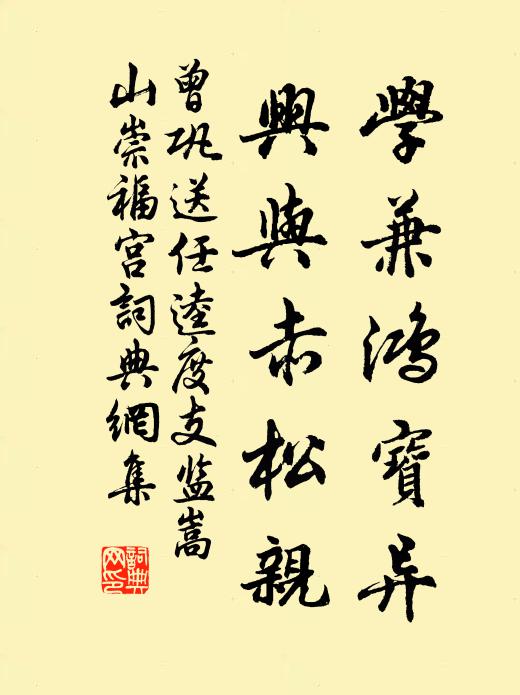 學兼鴻寶异
興與赤松親
曾巩送任逵度支监嵩
山崇福宫詞典網集
詞典
网印